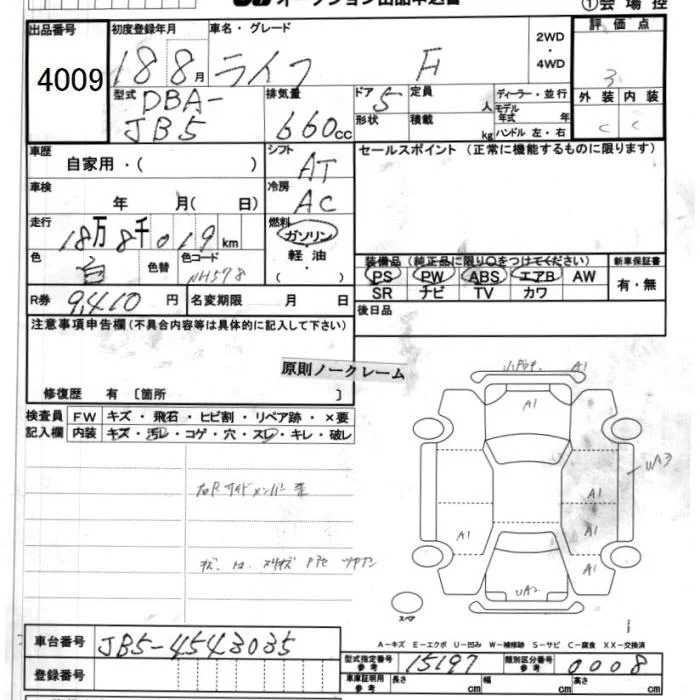 オークション出品申込書
①会場控
出品番号
4009
初度登録年月
18 8月
車名・グレード
ライフ F
2WD
・
4WD
評価点
3
外装 内装
C C
型式
DBA-
JB5
排気量
660cc
ドア 5
定員 人
形状
積載 kg
ディーラー・並行
モデル年式 年
ハンドル 左・右
車歴
自家用・( )
シフト
AT
セールスポイント (正常に機能するものに限ります)
車検
年 月( 日)
冷房
AC
走行
18万8千019km
燃料
ガソリン
軽油
・
色
色替
色コード
NH578
装備品 (純正品に限り○をつけてください)
PS PW ABS エアB AW
SR ナビ TV カワ
新車保証書
有・無
R券 9,410円
名変期限 月 日
後日品
注意事項申告欄(不具合内容等は具体的に記入して下さい)
原則ノークレーム
修復歴 有 〔箇所 〕
検査員
記入欄
FW キズ・飛石・ヒビ割・リペア跡・×要
内装 キズ・汚レ・コゲ・穴・スレ・キレ・破レ
右Rサイドメンバー歪
A1
A1
UA3
A1
A1
A1
A1
UA2
スペア
A-キズ E-エクボ U-凹み W-補修跡 S-サビ C-腐食 XX-交換済
車台番号 JB5-4543035
型式指定番号
参考
15197
類別区分番号
参考
0008
登録番号
車庫証明用
参考
長さ cm 幅 cm 高さ cm